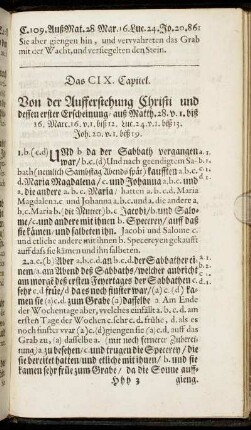 C.109. Auß Mat. 28 Mar. 16. Luc. 24. Jo. 20, 86:
Sie aber giengen hin, und verwahreten das Grab
mit der Wacht, und versiegelten den Stein.
Das CIX. Capitel.
Von der Aufferstehung Christi und
dessen erster Erscheinung/ auß Matth. 28. v. 1. biß
16. Marc. 16. v. 1. biß 12. Luc. 24. v. 1. biß 13.
Joh. 20. v. 1. biß 19.
1. b (c. d) UNd b da der Sabbath vergangen
war/ b. c. d) Und nach geendigtem Sab-
bath (neulich Samstag Abends spät) kaufften
d. Maria Magdalena/ c. und Johanna a. b. c. und
a. die andere a. b. c. Maria/ hatten a. b. c. d. Maria
Magdalena c. und Johanna a. b. c. und a. die andere a.
b. c. Maria b. (die Mutter) b. c. Jacobi/ b. und Salo-
me/ c. und andere mit ihnen b. Specerey/ auff daß
sie kämen/ und salbeten ihn. Jacobi und Salome c.
und etliche andere mit ihnen b. Specereyen gekaufft
auff daß sie kämen und ihn salbeten.
2. a. c. (b) Aber a. b. c. d. an b. c. d. der Sabbather ei-
nem/ a. am Abend deß Sabbaths/ welcher anbricht
am morgē deß ersten Feyertages der Sabbathen
sehr c. d. früe/ d. da es noch finster war/ (a). c. (d) ka-
men sie (a) c. d. zum Grabe (a) dasselbe a. Am Ende
der Wochentage aber, welches einfällt a. b. c. d. am
ersten Tage der Wochen c. sehr c. d. frühe, d. als es
noch finster war (2) c. (d) giengen sie (a) c. d. auff das
Grab zu, (a) dasselbe a. (mit noch fernerer Zuberei-
tung) a. zu besehen/ c. und trugen die Specerey/ die
sie bereitet hatten/ und etliche mit ihnen/ b. und sie
kamen sehr früe zum Grabe/ da die Sonne auff-
Hhy 3 gieng.